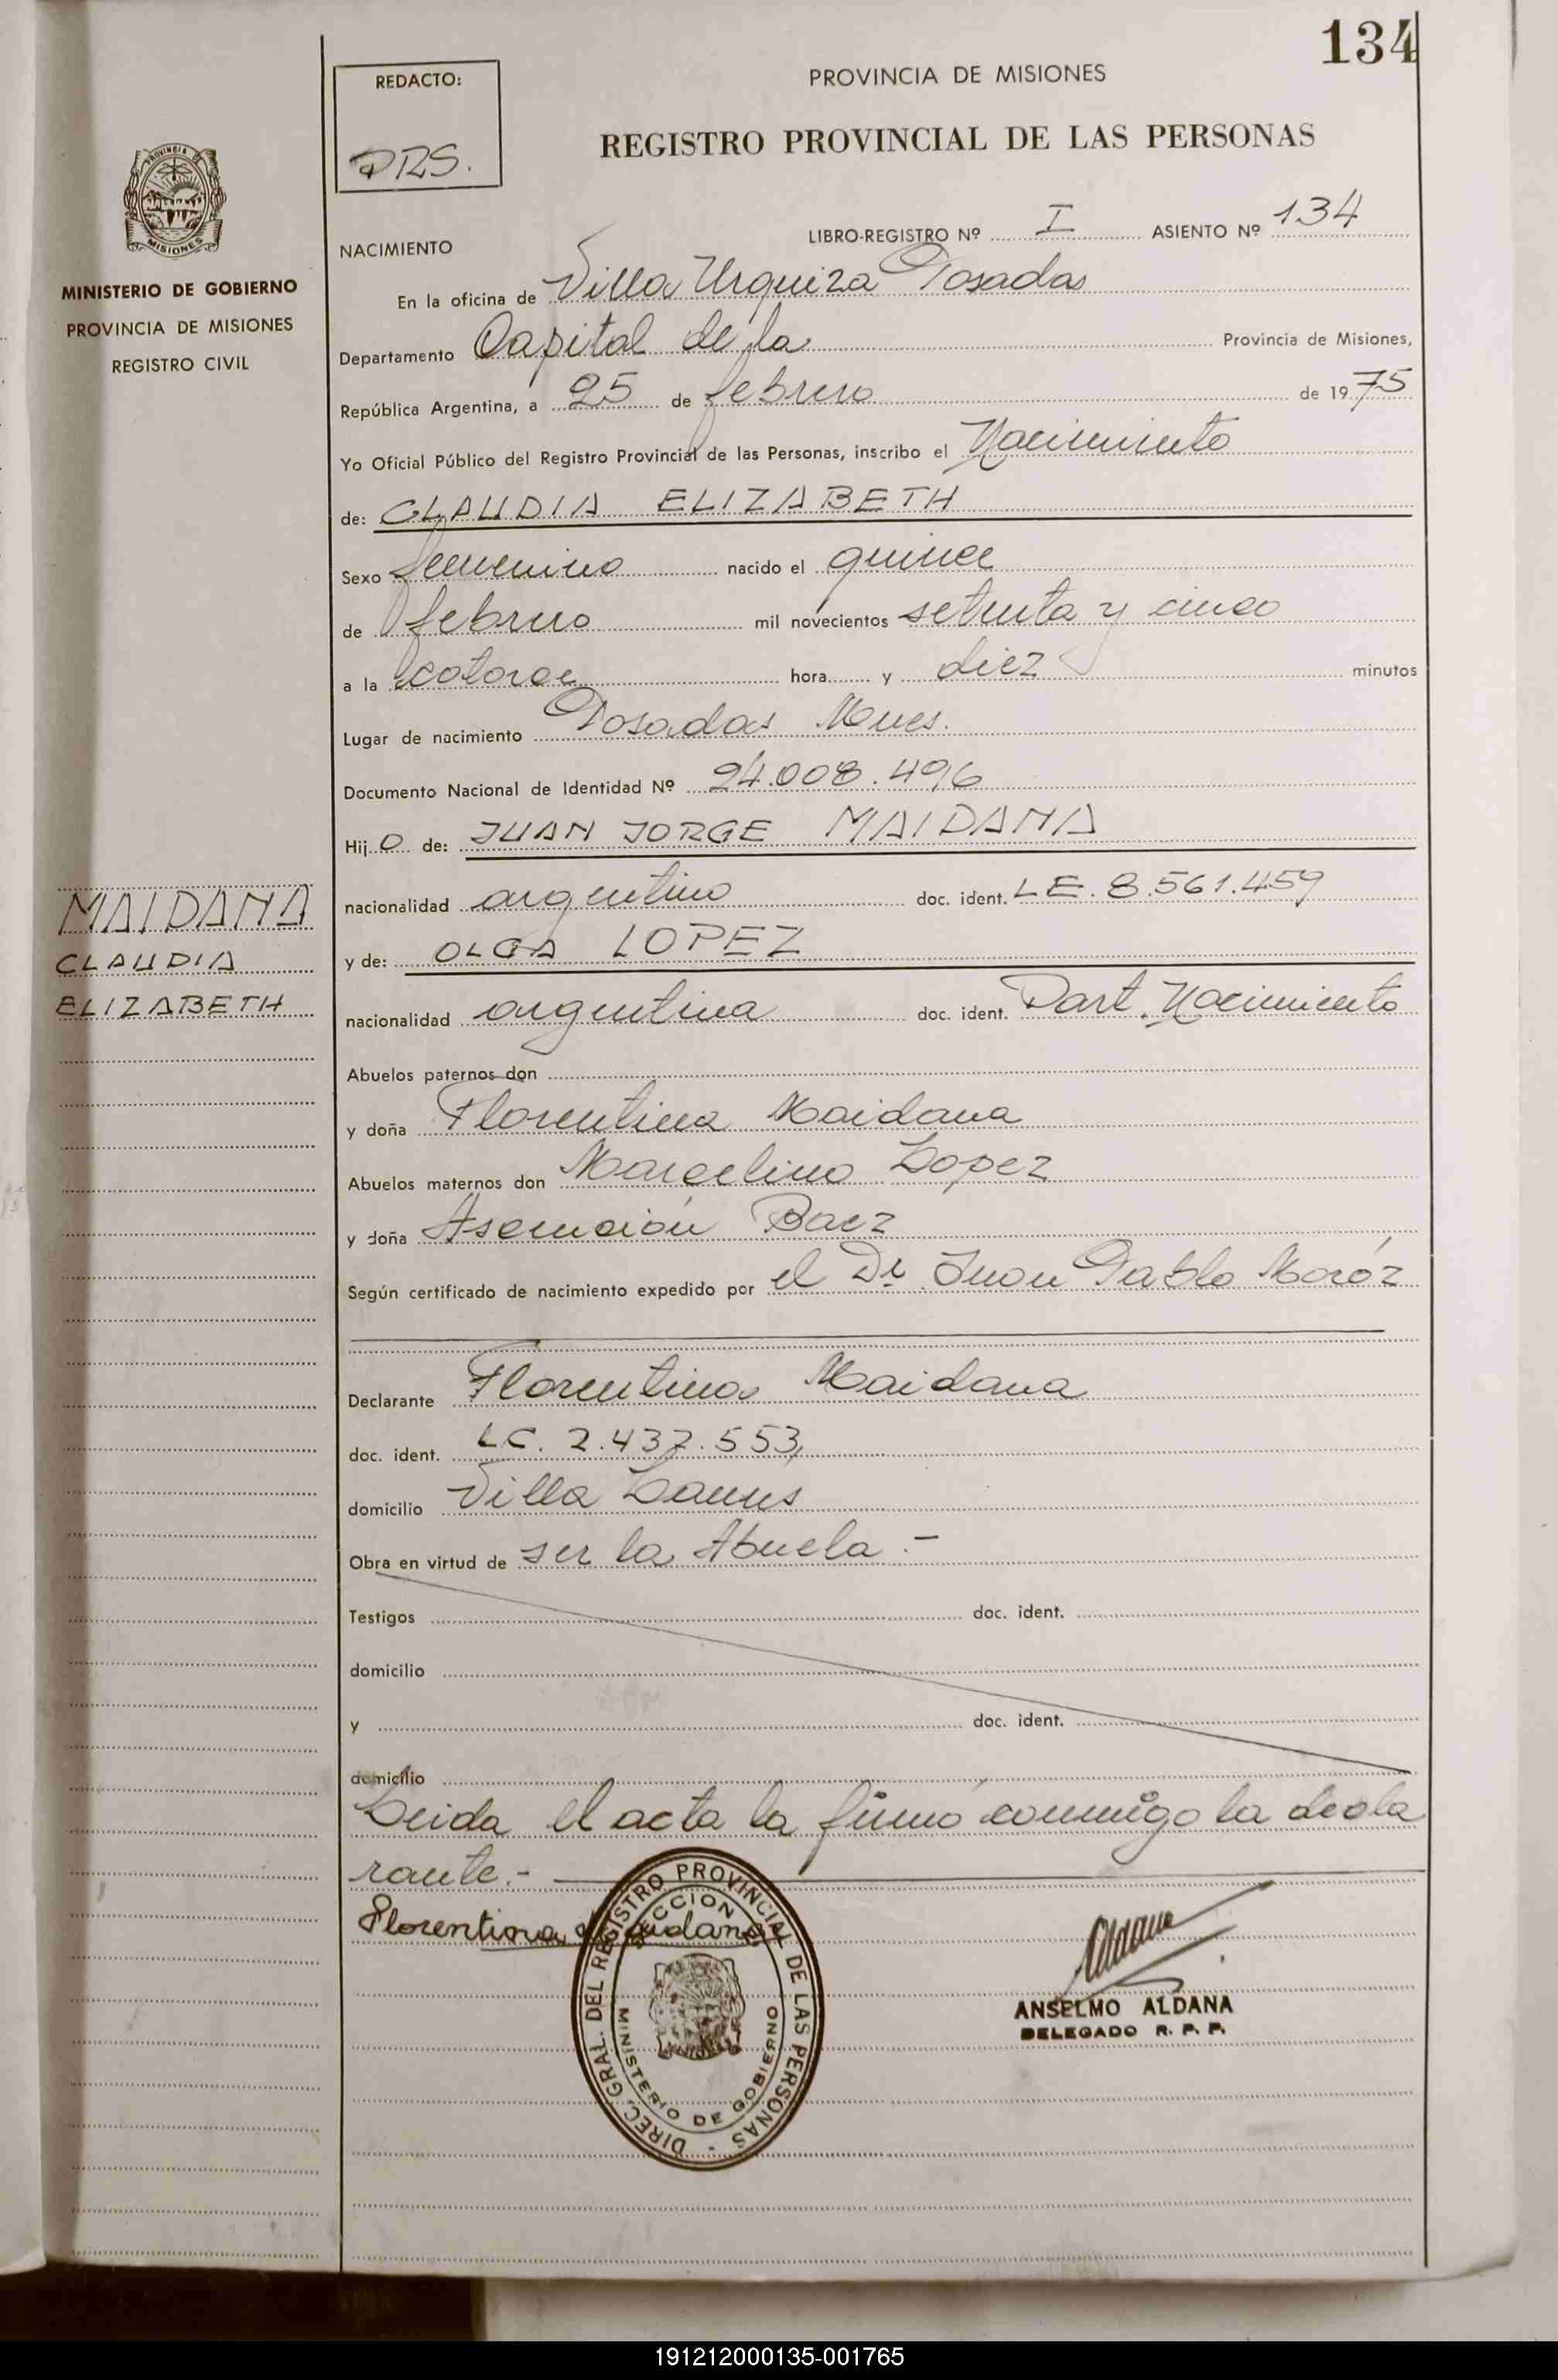 134
REDACTO:
DRS.
PROVINCIA DE MISIONES
REGISTRO PROVINCIAL DE LAS PERSONAS
PROVINCIA DE
MISIONES
MINISTERIO DE GOBIERNO
PROVINCIA DE MISIONES
REGISTRO CIVIL
NACIMIENTO
LIBRO-REGISTRO Nº I ASIENTO Nº 134
En la oficina de Villa Urquiza Posadas
Departamento Capital de la Provincia de Misiones,
República Argentina, a 25 de febrero de 1975
Yo Oficial Público del Registro Provincial de las Personas, inscribo el Nacimiento
de: CLAUDIA ELIZABETH
Sexo femenino nacido el quince
de febrero mil novecientos setenta y cinco
a la catorce hora y diez minutos
Lugar de nacimiento Posadas Mnes.
Documento Nacional de Identidad Nº 24.008.496
Hijo de: JUAN JORGE MAIDANA
nacionalidad argentino doc. ident. L.E. 8.561.459
y de: OLGA LOPEZ
nacionalidad argentina doc. ident. Part. Nacimiento
MAIDANA
CLAUDIA
ELIZABETH
Abuelos paternos don
y doña Florentina Maidana
Abuelos maternos don Marcelino Lopez
y doña Asención Baez
Según certificado de nacimiento expedido por el Dr. Juan Pablo Moróz
Declarante Florentina Maidana
doc. ident. L.C. 2.437.553
domicilio Villa Lanus
Obra en virtud de ser la Abuela.-
Testigos doc. ident.
domicilio
y doc. ident.
domicilio
Leida el acta la firmó conmigo la decla
rante.-
Florentina Maidana
DIREC. GRAL. DEL REGISTRO PROVINCIAL DE LAS PERSONAS
MINISTERIO DE GOBIERNO
Aldana
ANSELMO ALDANA
DELEGADO R. P. P.
191212000135-001765